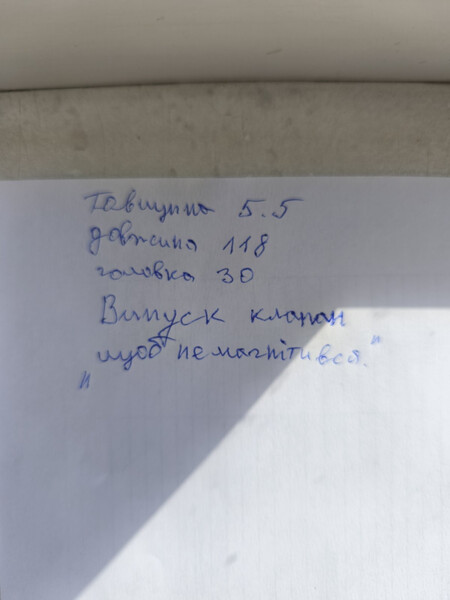 Товщина 5.5
довжина 118
головка 30
Випуск клапан
"щоб не магнітився."